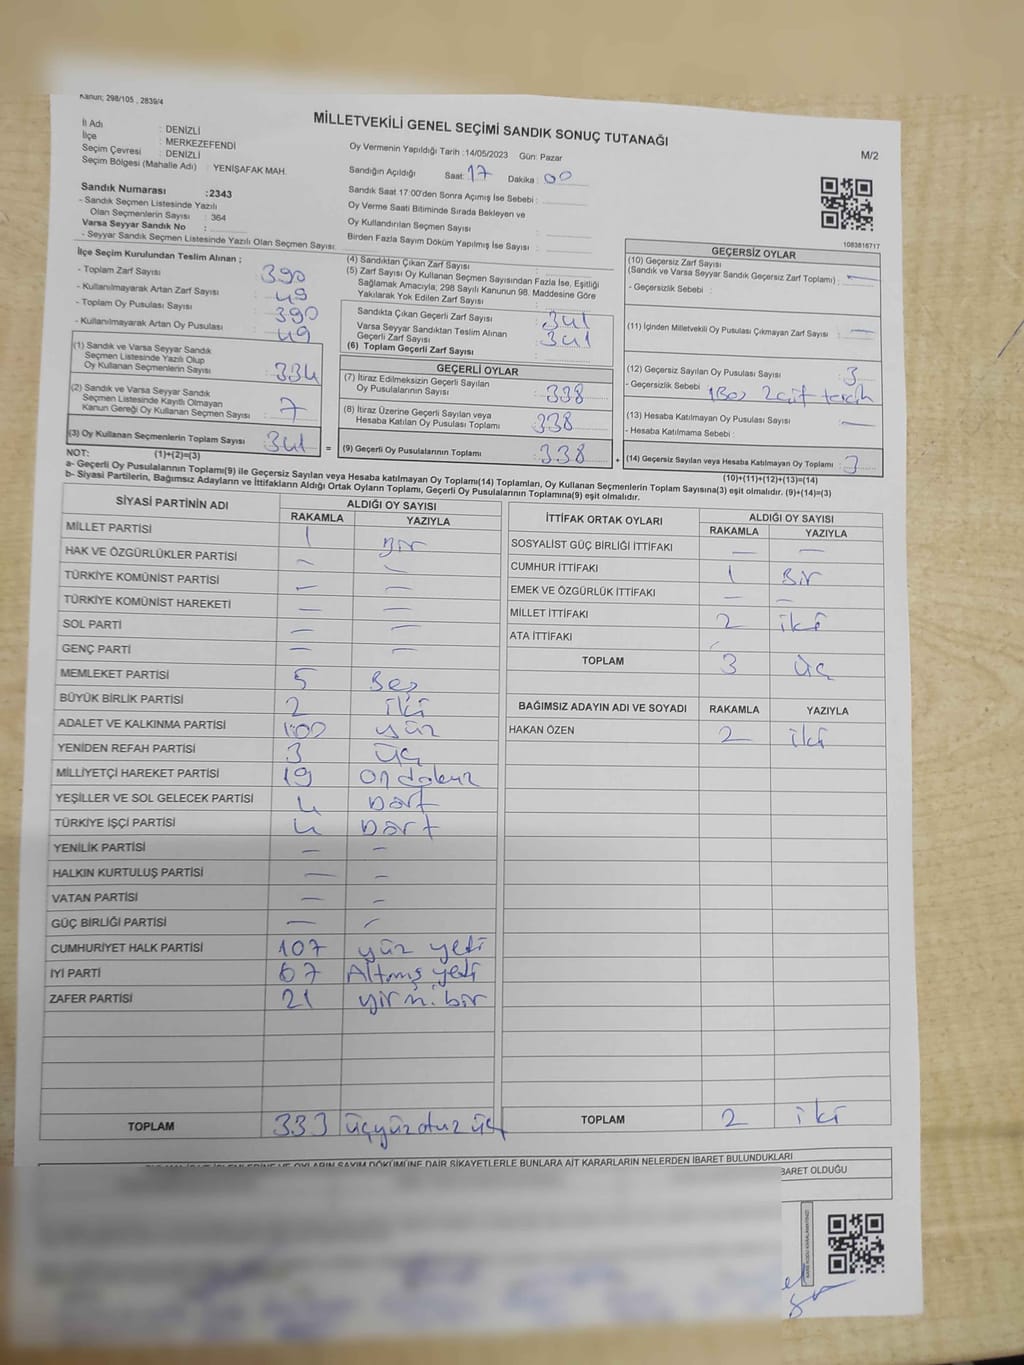 Kanun; 298/105 , 2839/4
MİLLETVEKİLİ GENEL SEÇİMİ SANDIK SONUÇ TUTANAĞI
M/2
İl Adı : DENİZLİ
İlçe : MERKEZEFENDİ
Seçim Çevresi : DENİZLİ
Seçim Bölgesi (Mahalle Adı) : YENİŞAFAK MAH.
Sandık Numarası :2343
- Sandık Seçmen Listesinde Yazılı
Olan Seçmenlerin Sayısı : 364
Varsa Seyyar Sandık No :
- Seyyar Sandık Seçmen Listesinde Yazılı Olan Seçmen Sayısı:
Oy Vermenin Yapıldığı Tarih :14/05/2023 Gün: Pazar
Sandığın Açıldığı Saat: 17 Dakika : 00
Sandık Saat 17:00'den Sonra Açımış İse Sebebi :
Oy Verme Saati Bitiminde Sırada Bekleyen ve
Oy Kullandırılan Seçmen Sayısı :
Birden Fazla Sayım Döküm Yapılmış İse Sayısı :
1083816717
İlçe Seçim Kurulundan Teslim Alınan ;
- Toplam Zarf Sayısı : 390
- Kullanılmayarak Artan Zarf Sayısı : 49
- Toplam Oy Pusulası Sayısı : 390
- Kullanılmayarak Artan Oy Pusulası : 49
(1) Sandık ve Varsa Seyyar Sandık
Seçmen Listesinde Yazılı Olup
Oy Kullanan Seçmenlerin Sayısı : 334
(2) Sandık ve Varsa Seyyar Sandık
Seçmen Listesinde Kayıtlı Olmayan
Kanun Gereği Oy Kullanan Seçmen Sayısı : 7
(3) Oy Kullanan Seçmenlerin Toplam Sayısı : 341 =
(4) Sandıktan Çıkan Zarf Sayısı :
(5) Zarf Sayısı Oy Kullanan Seçmen Sayısından Fazla İse, Eşitliği
Sağlamak Amacıyla; 298 Sayılı Kanunun 98. Maddesine Göre
Yakılarak Yok Edilen Zarf Sayısı :
Sandıkta Çıkan Geçerli Zarf Sayısı : 341
Varsa Seyyar Sandıktan Teslim Alınan
Geçerli Zarf Sayısı : 341
(6) Toplam Geçerli Zarf Sayısı :
GEÇERLİ OYLAR
(7) İtiraz Edilmeksizin Geçerli Sayılan
Oy Pusulalarının Sayısı : 338
(8) İtiraz Üzerine Geçerli Sayılan veya
Hesaba Katılan Oy Pusulası Toplamı : 338
(9) Geçerli Oy Pusulalarının Toplamı : 338 +
GEÇERSİZ OYLAR
(10) Geçersiz Zarf Sayısı
(Sandık ve Varsa Seyyar Sandık Geçersiz Zarf Toplamı) : —
- Geçersizlik Sebebi :
(11) İçinden Milletvekili Oy Pusulası Çıkmayan Zarf Sayısı : —
(12) Geçersiz Sayılan Oy Pusulası Sayısı : 3
- Geçersizlik Sebebi : 1Boş 2çift tercih
(13) Hesaba Katılmayan Oy Pusulası Sayısı : —
- Hesaba Katılmama Sebebi :
(14) Geçersiz Sayılan veya Hesaba Katılmayan Oy Toplamı : 3
NOT: (1)+(2)=(3) (10)+(11)+(12)+(13)=(14)
a- Geçerli Oy Pusulalarının Toplamı(9) ile Geçersiz Sayılan veya Hesaba katılmayan Oy Toplamı(14) Toplamları, Oy Kullanan Seçmenlerin Toplam Sayısına(3) eşit olmalıdır. (9)+(14)=(3)
b- Siyasi Partilerin, Bağımsız Adayların ve İttifakların Aldığı Ortak Oyların Toplamı, Geçerli Oy Pusulalarının Toplamına(9) eşit olmalıdır.
SİYASİ PARTİNİN ADI ALDIĞI OY SAYISI
RAKAMLA YAZIYLA
MİLLET PARTİSİ 1 Bir
HAK VE ÖZGÜRLÜKLER PARTİSİ — —
TÜRKİYE KOMÜNİST PARTİSİ — —
TÜRKİYE KOMÜNİST HAREKETİ — —
SOL PARTİ — —
GENÇ PARTİ — —
MEMLEKET PARTİSİ 5 Beş
BÜYÜK BİRLİK PARTİSİ 2 iki
ADALET VE KALKINMA PARTİSİ 100 yüz
YENİDEN REFAH PARTİSİ 3 üç
MİLLİYETÇİ HAREKET PARTİSİ 19 On dokuz
YEŞİLLER VE SOL GELECEK PARTİSİ 4 Dört
TÜRKİYE İŞÇİ PARTİSİ 4 Dört
YENİLİK PARTİSİ — —
HALKIN KURTULUŞ PARTİSİ — —
VATAN PARTİSİ — —
GÜÇ BİRLİĞİ PARTİSİ — —
CUMHURİYET HALK PARTİSİ 107 yüz yedi
İYİ PARTİ 67 Altmış yedi
ZAFER PARTİSİ 21 yirmi bir
TOPLAM 333 üçyüz otuz üç
İTTİFAK ORTAK OYLARI ALDIĞI OY SAYISI
RAKAMLA YAZIYLA
SOSYALİST GÜÇ BİRLİĞİ İTTİFAKI — —
CUMHUR İTTİFAKI 1 Bir
EMEK VE ÖZGÜRLÜK İTTİFAKI — —
MİLLET İTTİFAKI 2 iki
ATA İTTİFAKI —
TOPLAM 3 üç
BAĞIMSIZ ADAYIN ADI VE SOYADI RAKAMLA YAZIYLA
HAKAN ÖZEN 2 iki
TOPLAM 2 iki
OYLARIN SAYIM DÖKÜMÜNE DAİR ŞİKAYETLERLE BUNLARA AİT KARARLARIN NELERDEN İBARET BULUNDUKLARI
İBARET OLDUĞU